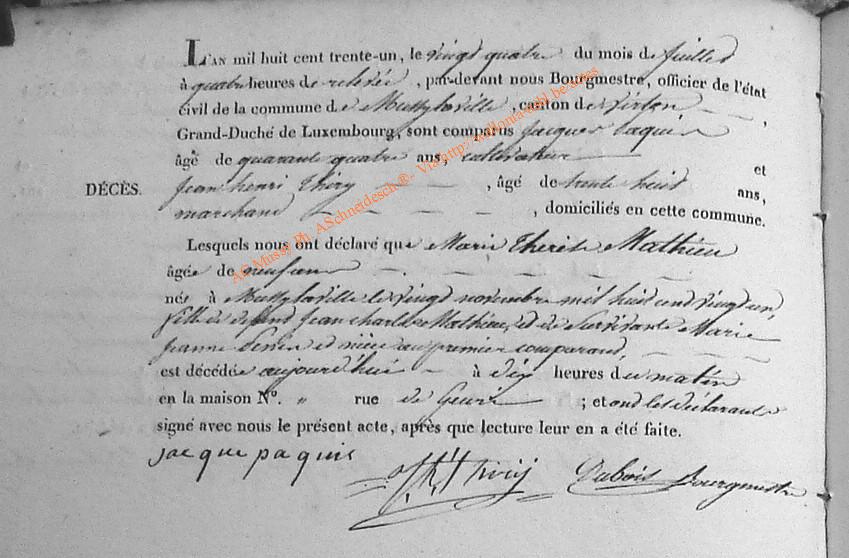 L'AN mil huit cent trente-un, le vingt quatre du mois de juillet
à quatre heures de relevée, par-devant nous Bourgmestre, officier de l'état
civil de la commune de Mussylaville, canton de Virton,
Grand-Duché de Luxembourg, sont comparus Jacques Paquis
âgé de quarante quatre ans, cultivateur et
DÉCÈS.
Jean henri Thiry, âgé de trente huit ans,
marchand, domiciliés en cette commune.
Lesquels nous ont déclaré que Marie Therese Mathieu
âgée de neuf ans
née à Mussylaville le vingt novembre mil huit cent vingt un,
fille de défunt Jean charles Mathieu, et de survivante Marie
jeanne et nièce au premier comparant,
est décédée aujourd'hui à dix heures du matin
en la maison N°. " rue de ; et ont les déclarants
signé avec nous le présent acte, après que lecture leur en a été faite.
jacque paquis
Thiry Dubois Bourgmestre
AC Mussy Ph. ASchneidesch ®- Via http://wallonia-asbl.be.sites